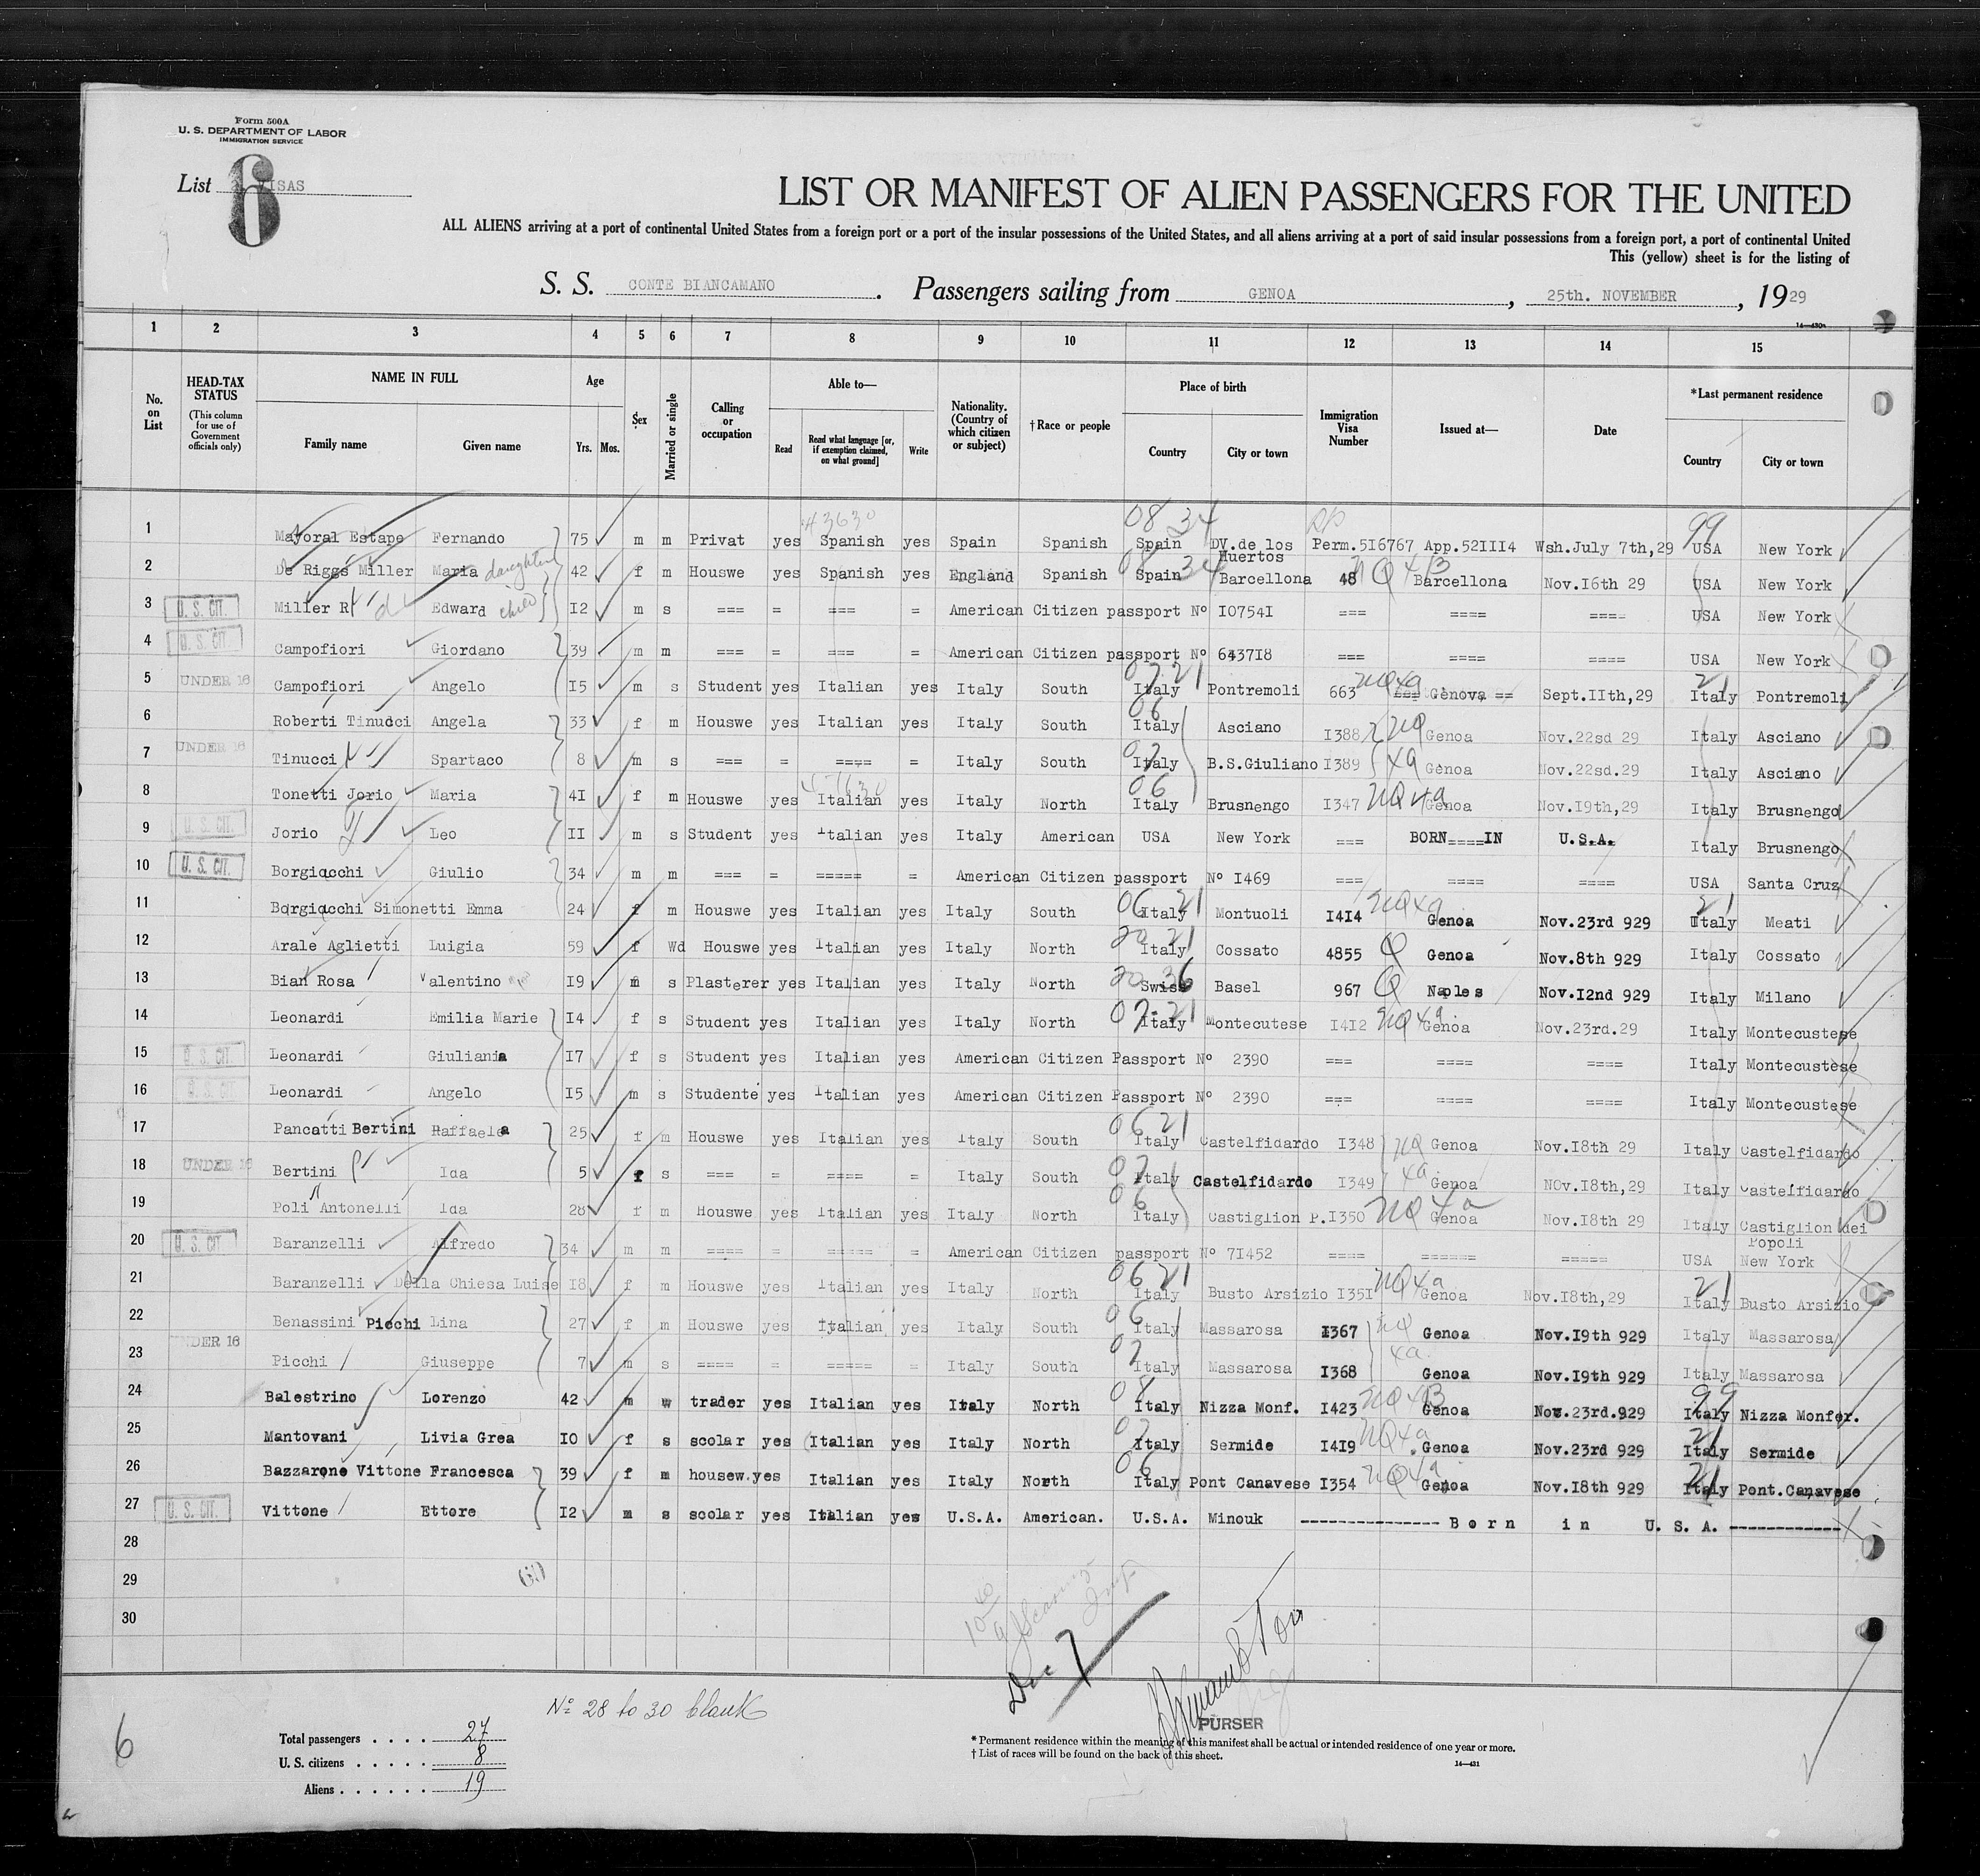 Form 500A
U. S. DEPARTMENT OF LABOR
IMMIGRATION SERVICE
List VISAS
6
LIST OR MANIFEST OF ALIEN PASSENGERS FOR THE UNITED
ALL ALIENS arriving at a port of continental United States from a foreign port or a port of the insular possessions of the United States, and all aliens arriving at a port of said insular possessions from a foreign port, a port of continental United
This (yellow) sheet is for the listing of
S. S. CONTE BIANCAMANO . Passengers sailing from GENOA , 25th. NOVEMBER , 1929
14—430a
1 2 3 4 5 6 7 8 9 10 11 12 13 14 15
No. on List
HEAD-TAX STATUS
(This column for use of Government officials only)
NAME IN FULL
Family name Given name
Age
Yrs. Mos.
Sex
Married or single
Calling or occupation
Able to—
Read
Read what language [or, if exemption claimed, on what ground]
Write
Nationality. (Country of which citizen or subject)
† Race or people
Place of birth
Country City or town
Immigration Visa Number
Issued at—
Date
*Last permanent residence
Country City or town
1 Mayoral Estape Fernando 75 m m Privat yes Spanish yes Spain Spanish 08 34 Spain DV.de los Huertos Perm.5I6767 App.52III4 Wsh.July 7th,29 99 USA New York
2 De Riggs Miller Maria daughter 42 f m Houswe yes Spanish yes England Spanish 08 34 Spain Barcellona 48 NQ4B Barcellona Nov.I6th 29 USA New York
3 U. S. CIT. Miller R d Edward child I2 m s === = === = American Citizen passport Nº I0754I === ==== ==== USA New York
4 U. S. CIT. Campofiori Giordano 39 m m === = === = American Citizen passport Nº 6437I8 === ==== ==== USA New York
5 UNDER 16 Campofiori Angelo I5 m s Student yes Italian yes Italy South 07 21 Italy Pontremoli 663 NQ4a === Genova == Sept.IIth,29 21 Italy Pontremoli
6 Roberti Tinucci Angela 33 f m Houswe yes Italian yes Italy South 06 Italy Asciano I388 NQ Genoa Nov.22sd 29 Italy Asciano
7 UNDER 16 Tinucci Spartaco 8 m s === = ==== = Italy South 07 Italy B.S.Giuliano I389 4a Genoa Nov.22sd.29 Italy Asciano
8 Tonetti Jorio Maria 4I f m Houswe yes Italian yes Italy North 06 Italy Brusnengo I347 NQ4a Genoa Nov.I9th,29 Italy Brusnengo
9 U. S. CIT. Jorio Leo II m s Student yes Italian yes Italy American USA New York === BORN====IN U.S.A. Italy Brusnengo
10 U. S. CIT. Borgiocchi Giulio 34 m m === = ===== = American Citizen passport Nº I469 === ==== ==== USA Santa Cruz
11 Borgiocchi Simonetti Emma 24 f m Houswe yes Italian yes Italy South 06 21 Italy Montuoli I4I4 NQ4a Genoa Nov.23rd 929 21 Italy Meati
12 Arale Aglietti Luigia 59 f Wd Houswe yes Italian yes Italy North 20 21 Italy Cossato 4855 Q Genoa Nov.8th 929 Italy Cossato
13 Bian Rosa Valentino I9 m s Plasterer yes Italian yes Italy North 20 36 Swiss Basel 967 Q Naples Nov.I2nd 929 Italy Milano
14 Leonardi Emilia Marie I4 f s Student yes Italian yes Italy North 07-21 Italy Montecutese I4I2 NQ4a Genoa Nov.23rd.29 Italy Montecustese
15 U. S. CIT. Leonardi Giuliania I7 f s Student yes Italian yes American Citizen Passport Nº 2390 === ==== ==== Italy Montecustese
16 U. S. CIT. Leonardi Angelo I5 m s Studente yes Italian yes American Citizen Passport Nº 2390 === ==== ==== Italy Montecustese
17 Pancatti Bertini Raffaela 25 f m Houswe yes Italian yes Italy South 06 21 Italy Castelfidardo I348 NQ Genoa Nov.I8th 29 Italy Castelfidardo
18 UNDER 16 Bertini Ida 5 f s === = ==== = Italy South 07 Italy Castelfidardo I349 4a Genoa NOv.I8th,29 Italy Castelfidardo
19 Poli Antonelli Ida 28 f m Houswe yes Italian yes Italy North 06 Italy Castiglion P.I350 NQ4a Genoa Nov.I8th 29 Italy Castiglion dei Popoli
20 U. S. CIT. Baranzelli Alfredo 34 m m ==== = ===== = American Citizen passport Nº 7I452 ==== ====== ===== USA New York
21 Baranzelli Della Chiesa Luise I8 f m Houswe yes Italian yes Italy North 06 21 Italy Busto Arsizio I35I NQ4a Genoa Nov.I8th,29 21 Italy Busto Arsizio
22 Benassini Picchi Lina 27 f m Houswe yes Italian yes Italy South 06 Italy Massarosa I367 NQ Genoa Nov.I9th 929 Italy Massarosa
23 UNDER 16 Picchi Giuseppe 7 m s ==== = ===== = Italy South 07 Italy Massarosa I368 4a Genoa Nov.I9th 929 Italy Massarosa
24 Balestrino Lorenzo 42 m w trader yes Italian yes Italy North 08 Italy Nizza Monf. I423 NQ4B Genoa Nov.23rd.929 99 Italy Nizza Monfer.
25 Mantovani Livia Grea I0 f s scolar yes Italian yes Italy North 07 Italy Sermide I4I9 NQ4a Genoa Nov.23rd 929 21 Italy Sermide
26 Bazzarone Vittone Francesca 39 f m housew.yes Italian yes Italy North 06 Italy Pont Canavese I354 NQ4a Genoa Nov.I8th 929 21 Italy Pont.Canavese
27 U. S. CIT. Vittone Ettore I2 m s scolar yes Italian yes U.S.A. American. U.S.A. Minouk --------------- Born in U. S. A. ------------
28
29
30
Dec 7
Nº 28 to 30 blank
PURSER
6
Total passengers . . . . 27
U. S. citizens . . . . . 8
Aliens . . . . . . 19
* Permanent residence within the meaning of this manifest shall be actual or intended residence of one year or more.
† List of races will be found on the back of this sheet.
14—431